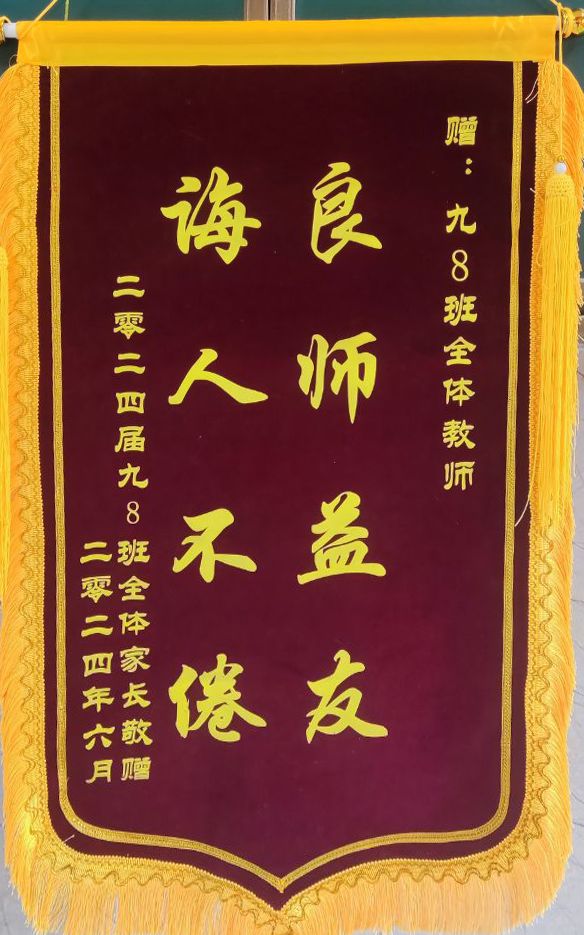 赠：九8班全体教师
良师益友
诲人不倦
二零二四届九8班全体家长敬赠
二零二四年六月